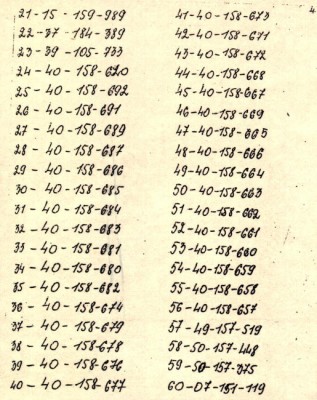 21-15-159-989
22-37-184-389
23-39-105-733
24-40-158-620
25-40-158-692
26-40-158-691
27-40-158-689
28-40-158-687
29-40-158-686
30-40-158-685
31-40-158-684
32-40-158-683
33-40-158-681
34-40-158-680
35-40-158-682
36-40-158-674
37-40-158-679
38-40-158-678
39-40-158-676
40-40-158-677
4
41-40-158-673
42-40-158-671
43-40-158-672
44-40-158-668
45-40-158-667
46-40-158-669
47-40-158-665
48-40-158-666
49-40-158-664
50-40-158-663
51-40-158-662
52-40-158-661
53-40-158-660
54-40-158-659
55-40-158-658
56-40-158-657
57-49-157-519
58-50-157-448
59-50-157-375
60-07-151-119